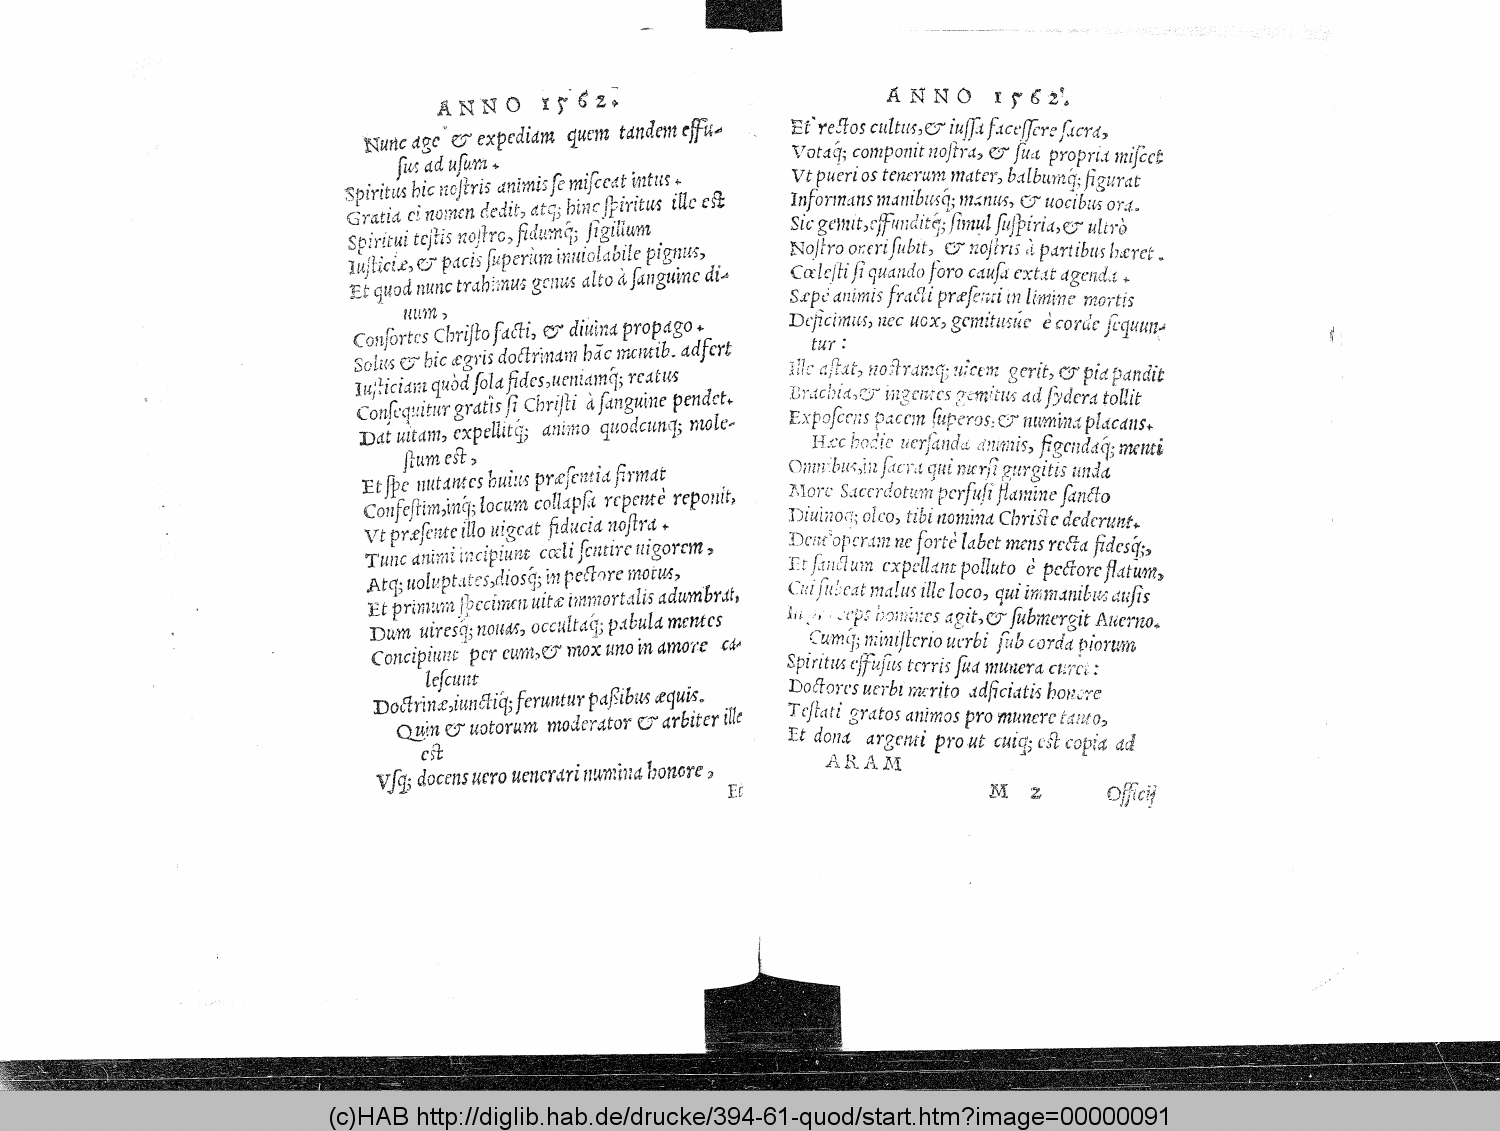 ANNO 1562.
Nunc age & expediam quem tandem effu-
ſus ad uſum.
Spiritus hic noſtris animis ſe miſceat intus.
Gratia ei nomen dedit, atq; hinc ſpiritus ille eſt
Spiritui teſtis noſtro, fidumq́; ſigillum
Iuſticiæ, & pacis ſuperùm inuiolabile pignus,
Et quod nunc trahimus genus alto à ſanguine di-
uum,
Conſortes Chriſto facti, & diuina propago.
Solus & hic ægris doctrinam hãc mentib. adfert
Iuſticiam quòd ſola fides, ueniamq́; reatus
Conſequitur gratis ſi Chriſti à ſanguine pendet.
Dat uitam, expellitq́; animo quodcunq; mole-
ſtum eſt,
Et ſpe nutantes huius præſentia firmat
Confeſtim, inq́; locum collapſa repentè reponit,
Vt præſente illo uigeat fiducia noſtra.
Tunc animi incipiunt cœli ſentire uigorem,
Atq; uoluptates, diosq́; in pectore motus,
Et primum ſpecimen uitæ immortalis adumbrat,
Dum uiresq́; nouas, occultaq́; pabula mentes
Concipiunt per eum, & mox uno in amore ca-
leſcunt
Doctrinæ, iunctiq́; feruntur paßibus æquis.
Quin & uotorum moderator & arbiter ille
eſt
Vſq; docens uero uenerari numina honore,
Et
ANNO 1562.
Et rectos cultus, & iuſſa faceſſere ſacra,
Votaq́; componit noſtra, & ſua propria miſcet
Vt pueri os tenerum mater, balbumq́; figurat
Informans manibusq́; manus, & uocibus ora.
Sic gemit, effunditq́; ſimul ſuſpiria, & ultrò
Noſtro oneri ſubit, & noſtris à partibus hæret.
Cœleſti ſi quando foro cauſa extat agenda.
Sæpè animis fracti præſenti in limine mortis
Deficimus, nec uox, gemitusúe è corde ſequun-
tur:
Ille aſtat, noſtramq; uicem gerit, & pia pandit
Brachia, & ingentes gemitus ad ſydera tollit
Expoſcens pacem ſuperos, & numina placans.
Hæc hodie uerſanda animis, figendaq́; menti
Omnibus, in ſacra qui merſi gurgitis unda
More Sacerdotum perfuſi flamine ſancto
Diuinoq; oleo, tibi nomina Chriſte dederunt.
Dent operam ne fortè labet mens recta fidesq́;,
Et ſanctum expellant polluto è pectore flatum,
Cui ſubeat malus ille loco, qui immanibus auſis
homines agit, & ſubmergit Auerno.
Cumq́; miniſterio uerbi ſub corda piorum
Spiritus effuſus terris ſua munera
Doctores uerbi merito adficiatis honore
Teſtati gratos animos pro munere tanto,
Et dona argenti pro ut cuiq; eſt copia ad
ARAM
M 2 Officij
(c)HAB http://diglib.hab.de/drucke/394-61-quod/start.htm?image=00000091